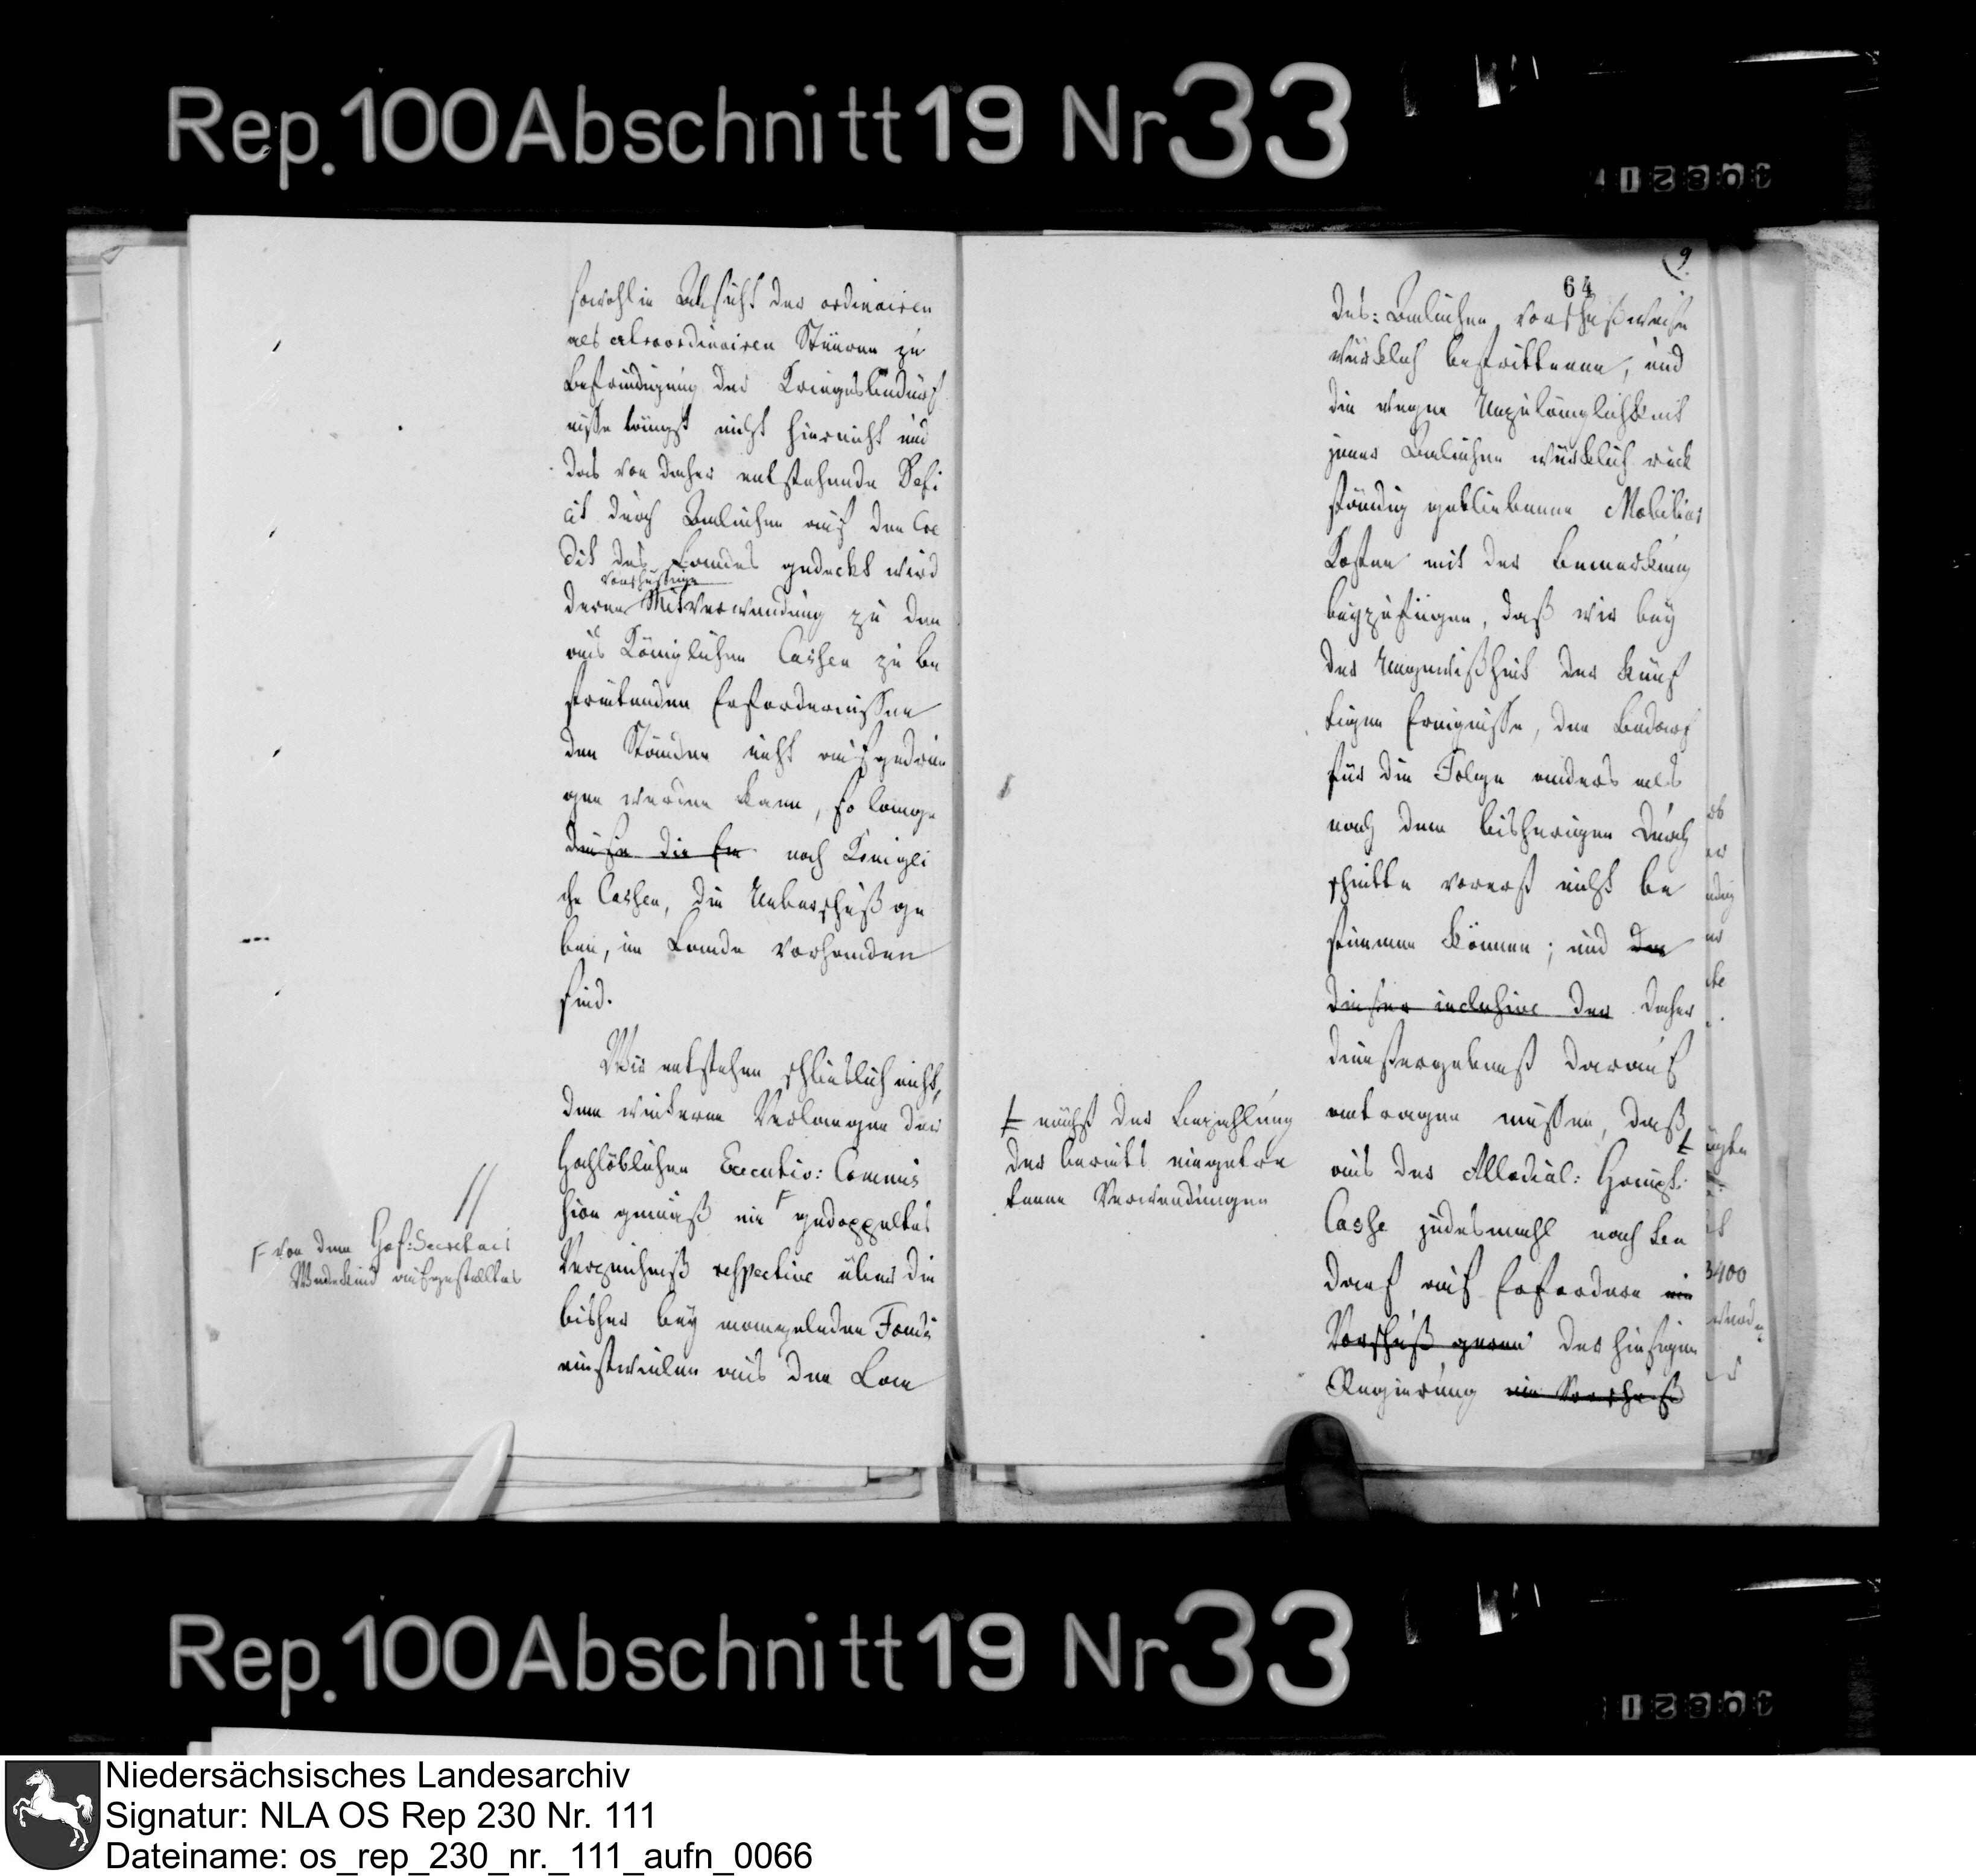 Rep. 100 Abschnitt 19 Nr 33
sowohl in Absicht der ordinairen
als extraordinairen Steuren zu
Befriedigung der Kriegesbedürf
nisse längst nicht hinreicht und
das von daher entstehende Defi
cit durch Anleihen auf den Cre
dit des Landes gedeckt wird
vorschüssige
deren Mitverwendung zu den
aus Königlichen Cassen zu be
streitenden Erfordernissen
den Ständen nicht aufgedrun
gen werden kann, so lange
diese die En noch Königli
che Cassen, die Ueberschuß ge
ben, im Lande vorhanden
sind.
Wir entstehen schlieslich nicht,
dem weiteren Verlangen der
Hochlöblichen Executiv: Commis
sion gemäß ein F gedoppeltes
Verzeichniß respective über die
bisher bey mangelnden Fonds
einstweilen aus den Lan
F von dem Hof: Secretair
Wedekind aufgestelltes
9.
64
des: Anleihen vorschußweise
würklich bestrittenen, und
die wegen Unzulänglichkeit
jener Anleihen würklich rück
ständig gebliebenen Mobiliar
Kosten mit der Bemerkung
beyzufügen, daß wir bey
der Ungewißheit der künf
tigen Ereignisse, den Bedarf
für die Folge anders als
nach dem bisherigen Durch
schnitte vorerst nicht be
stimmen können; und den
dieser inclusive der daher
dienstergebenst darauf
antragen müssen, daß
aus der Allodial: Haupt:
Casse jedesmahl nach Be
darf auf Erfordern ein
Vorschuß geren der hiesigen
Regierung ein Vorschuß
nächst der Bezahlung
der bereits eingetre
tenen Verwendungen
3400
Rep. 100 Abschnitt 19 Nr 33
Niedersächsisches Landesarchiv
Signatur: NLA OS Rep 230 Nr. 111
Dateiname: os_rep_230_nr._111_aufn_0066